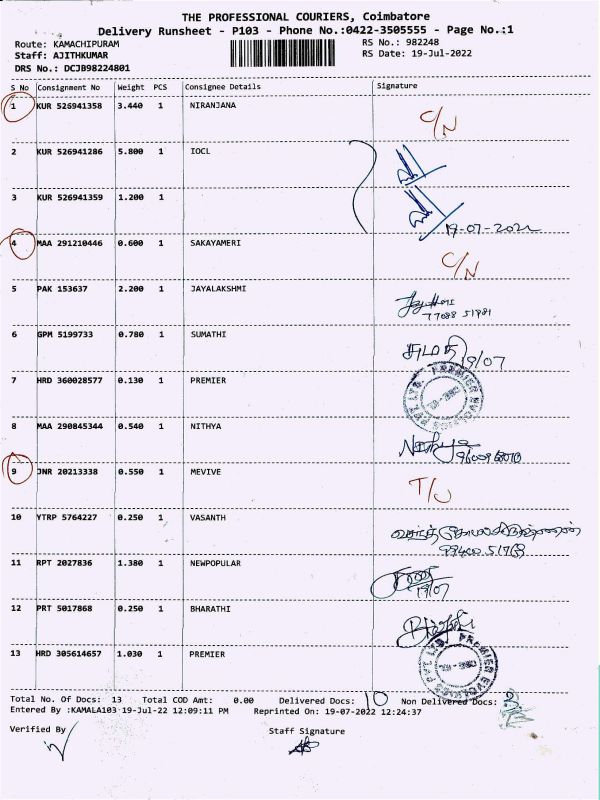 THE PROFESSIONAL COURIERS, Coimbatore
Delivery Runsheet - P103 - Phone No.:0422-3505555 - Page No.:1
Route: KAMACHIPURAM RS No.: 982248
Staff: AJITHKUMAR RS Date: 19-Jul-2022
DRS No.: DCJB98224801
S No Consignment No Weight PCS Consignee Details Signature
1 KUR 526941358 3.440 1 NIRANJANA C/N
2 KUR 526941286 5.800 1 IOCL
3 KUR 526941359 1.200 1 19-07-2022
4 MAA 291210446 0.600 1 SAKAYAMERI C/N
5 PAK 153637 2.200 1 JAYALAKSHMI
77088 51981
6 GPM 5199733 0.780 1 SUMATHI சுமதி 19/07
7 HRD 360028577 0.130 1 PREMIER
8 MAA 290845344 0.540 1 NITHYA Nithya
9 JNR 20213338 0.550 1 MEVIVE T/U
10 YTRP 5764227 0.250 1 VASANTH
11 RPT 2027836 1.380 1 NEWPOPULAR
19/07
12 PRT 5017868 0.250 1 BHARATHI
13 HRD 305614657 1.030 1 PREMIER
Total No. Of Docs: 13 Total COD Amt: 0.00 Delivered Docs: 10 Non Delivered Docs: 3
Entered By :KAMALA103 19-Jul-22 12:09:11 PM Reprinted On: 19-07-2022 12:24:37
Verified By Staff Signature